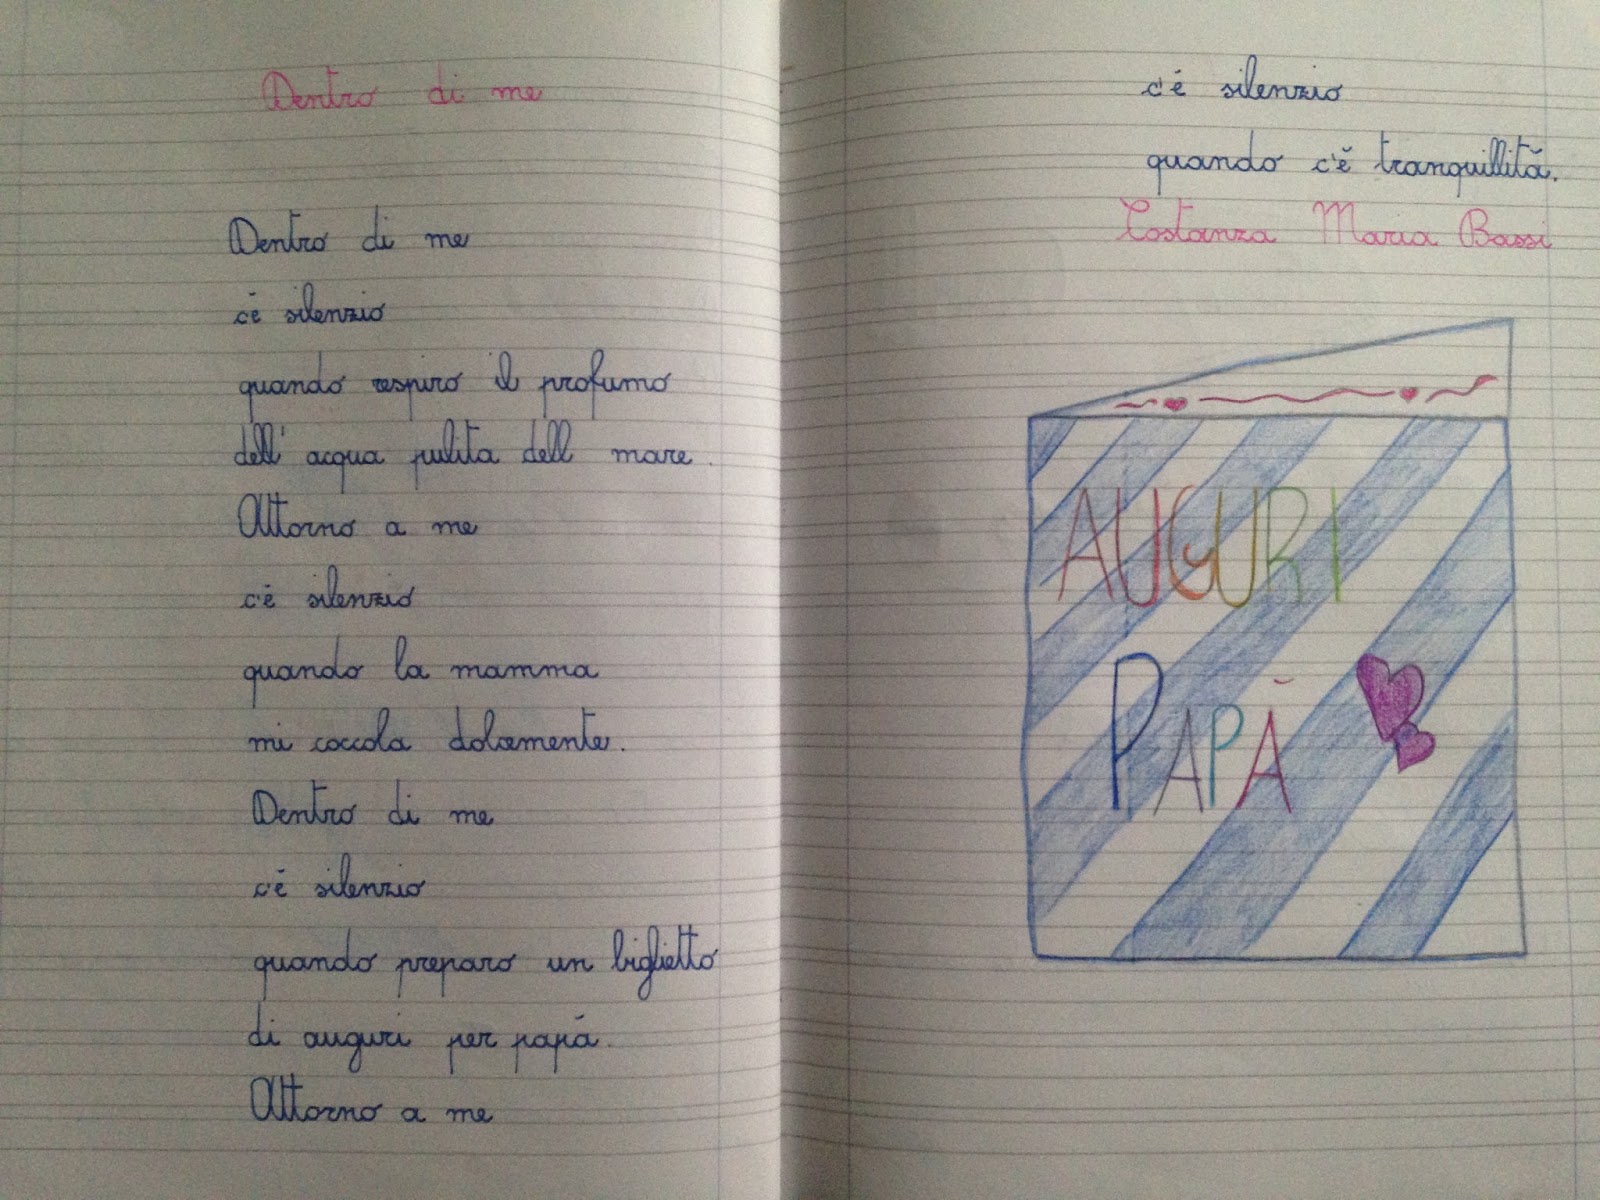 Dentro di me
Dentro di me
c'è silenzio
quando respiro il profumo
dell' acqua pulita dell mare.
Attorno a me
c'è silenzio
quando la mamma
mi coccola dolcemente.
Dentro di me
c'è silenzio
quando preparo un biglietto
di auguri per papà.
Attorno a me
c'è silenzio
quando c'è tranquillità.
Costanza Maria Bassi
AUGURI
PAPÀ